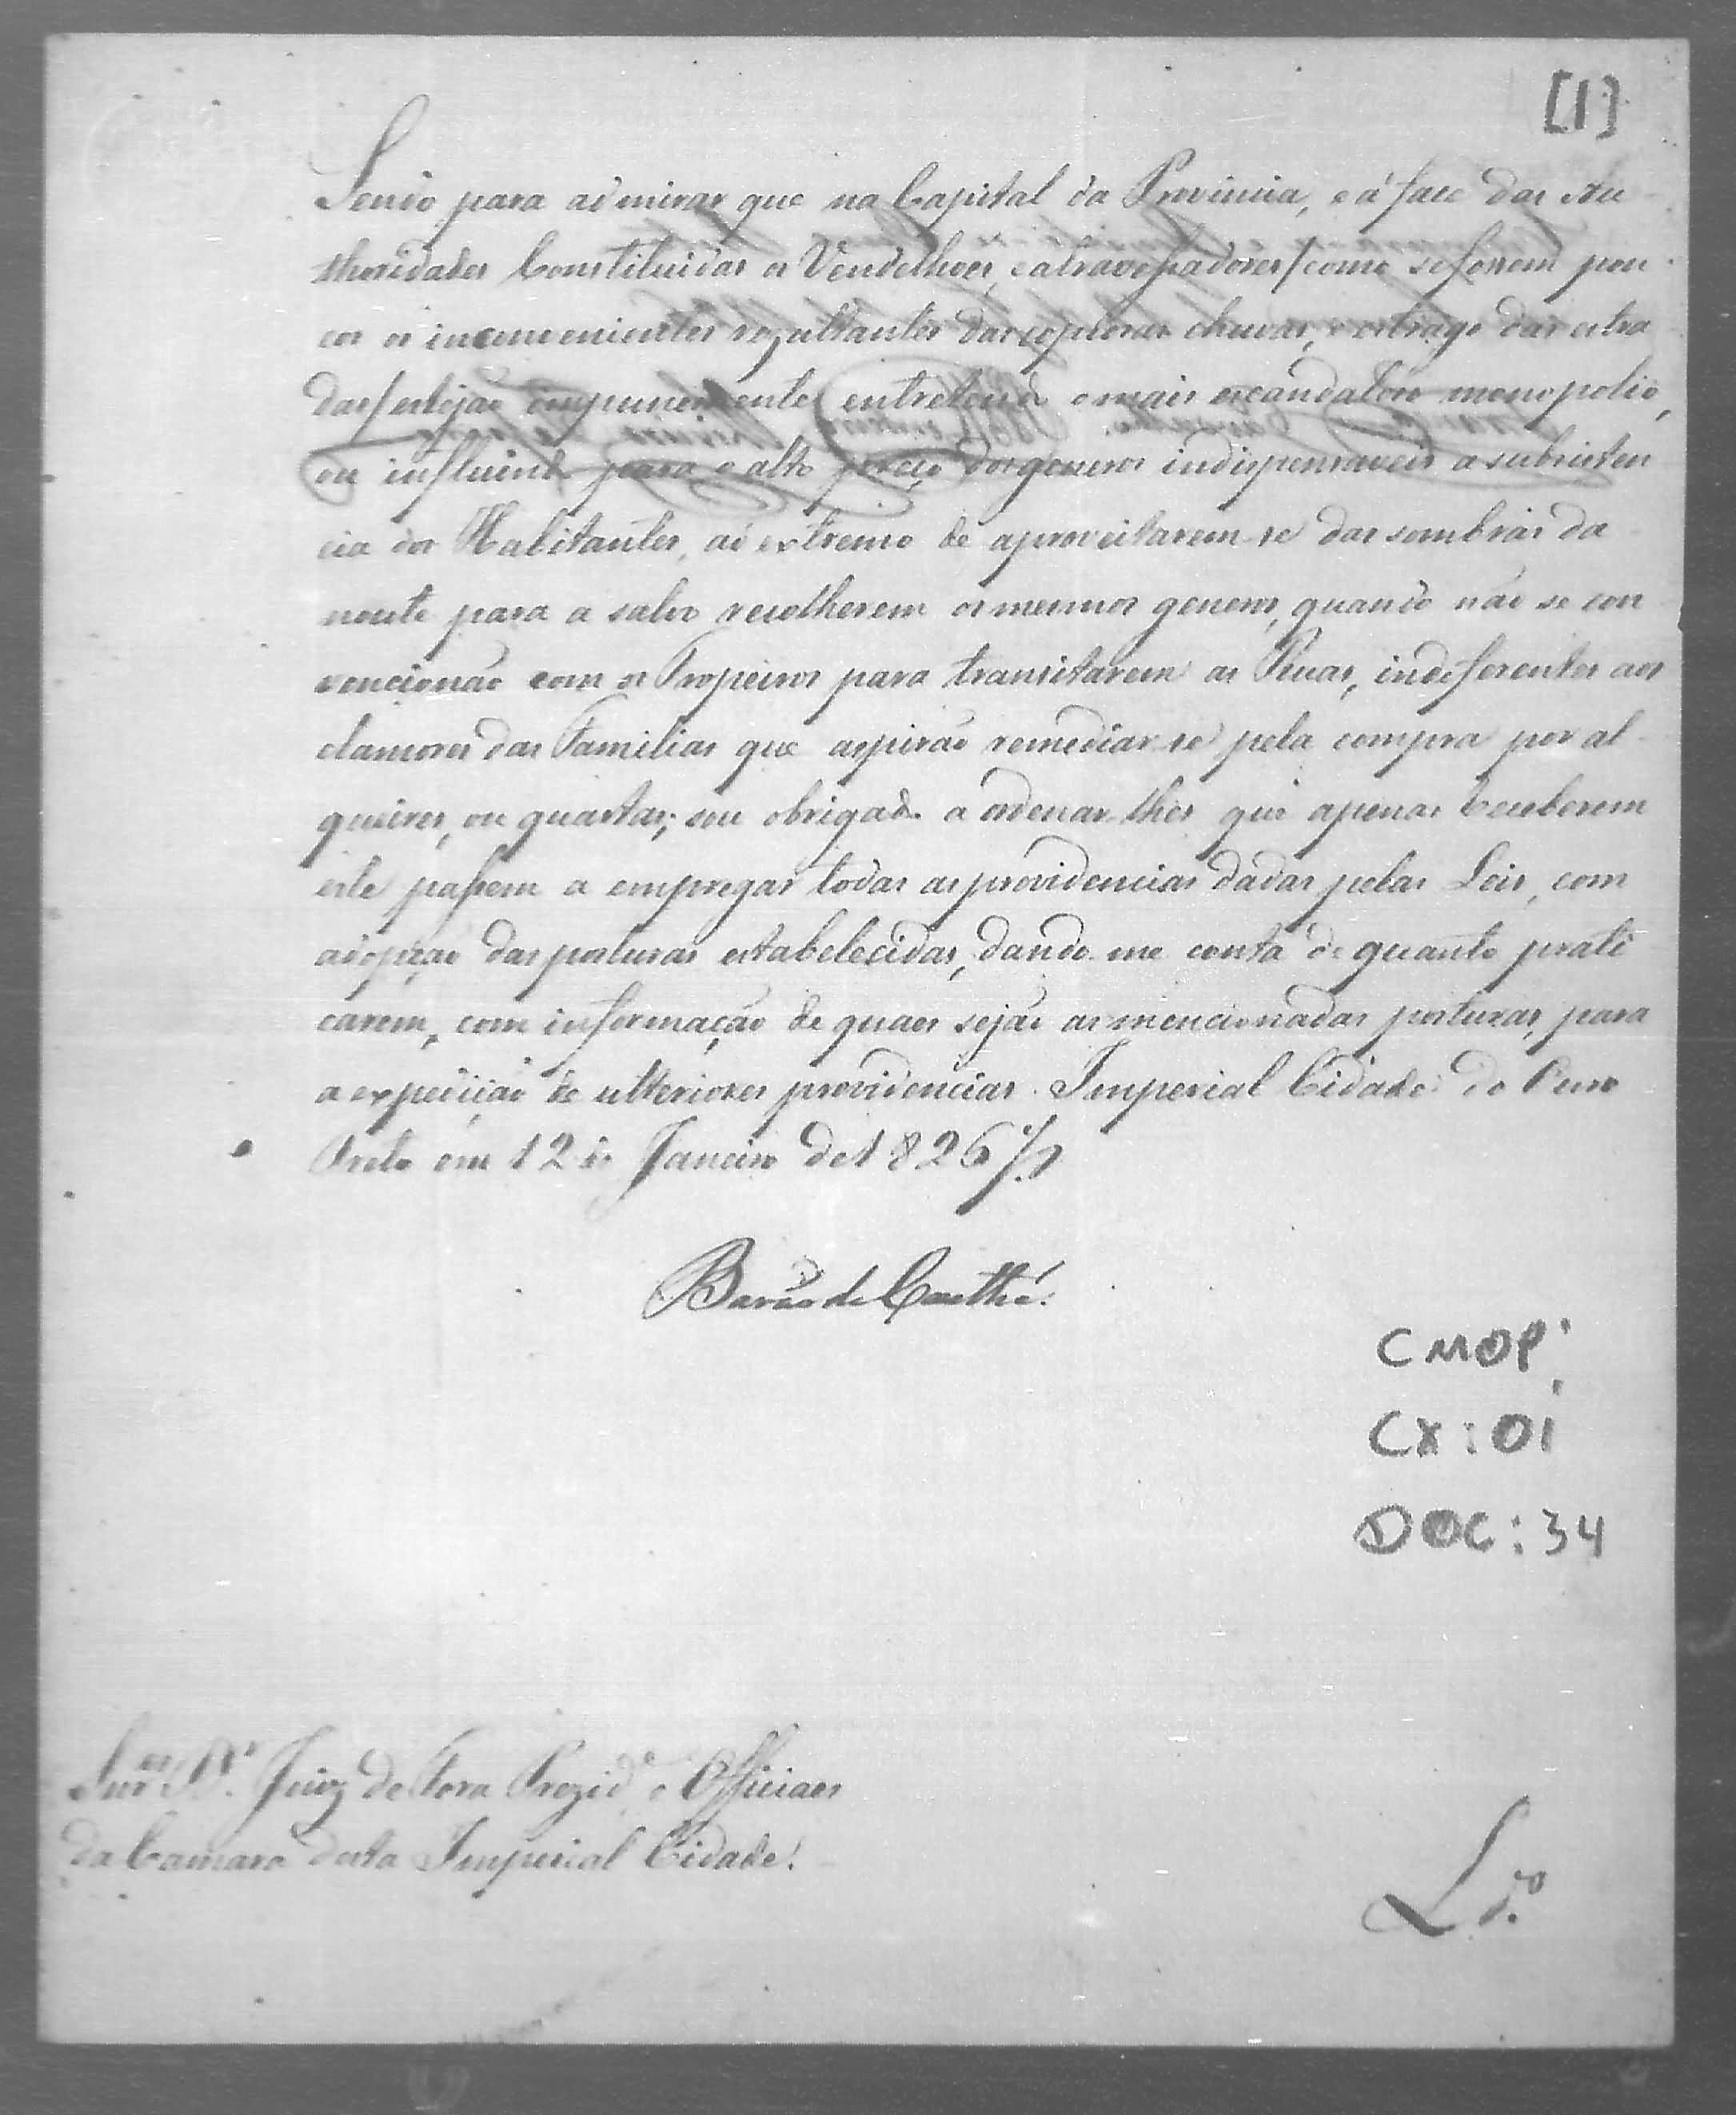 [1]
Sendo para admirar que na Capital da Provincia, e á face das Au
thoridades Constituidas os Vendelhoes, e atravessadores/como se fossem pou
cos os inconvenientes rezultantes das copiozas chuvas, e estrago das estra
das/estejão impunemente entretendo o mais escandalozo monopolio,
ou influindo para o alto preço dos generos indispensaveis a subsisten
cia dos Habitantes, ao extremo de aproveitarem-se das sombras da
noute para a salvo recolherem os mesmos generos, quando não se con
vencionão com os Tropeiros para transitarem as Ruas, indiferentes aos
clamores das Familias que aspirão remediar-se pela compra por al-
queires, ou quartas; sou obrigado a ordenar-lhes que apenas receberem
este passem a empregar todas as providencias dadas pelas Leis, com
adopção das posturas estabelecidas, dando-me conta de quanto prati
carem, com informação de quaes sejão as mencionadas posturas, para
a expedição de ulteriores providencias. Imperial Cidade do Ouro
Preto em 12 de Janeiro de 1826
Barão de Caethé.
CMOP.
CX: 01
DOC: 34
Snr.es D.r Juiz de Fora Prezid.e e Officiaes
da Camara desta Imperial Cidade.